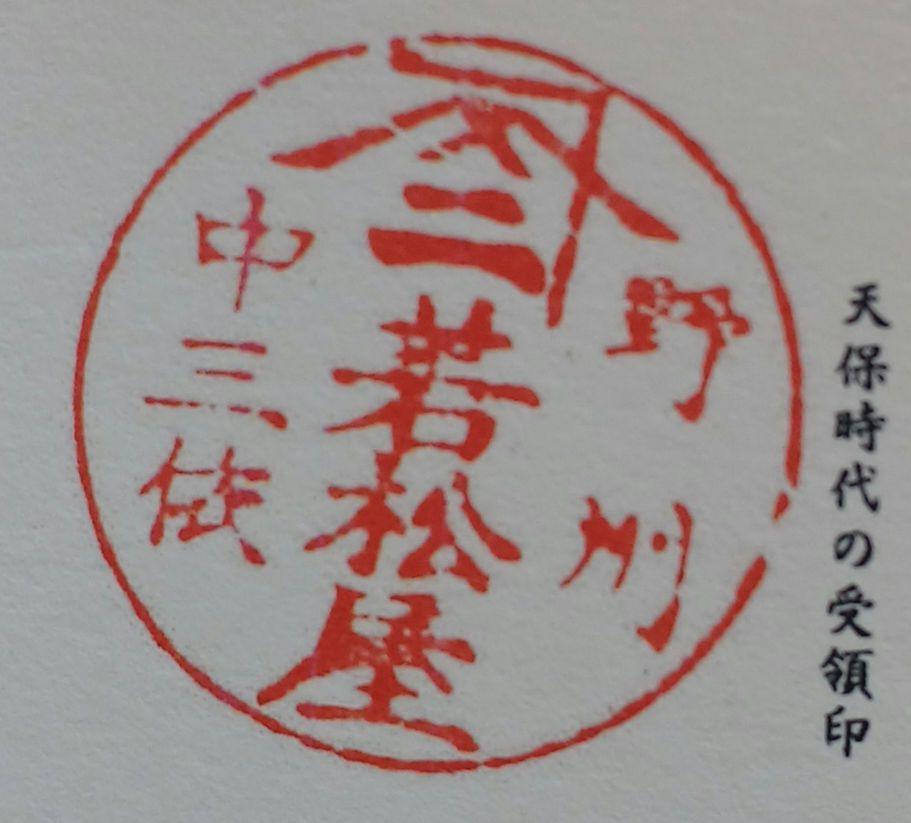 天保時代の受領印
野州
三
若松屋
中三依